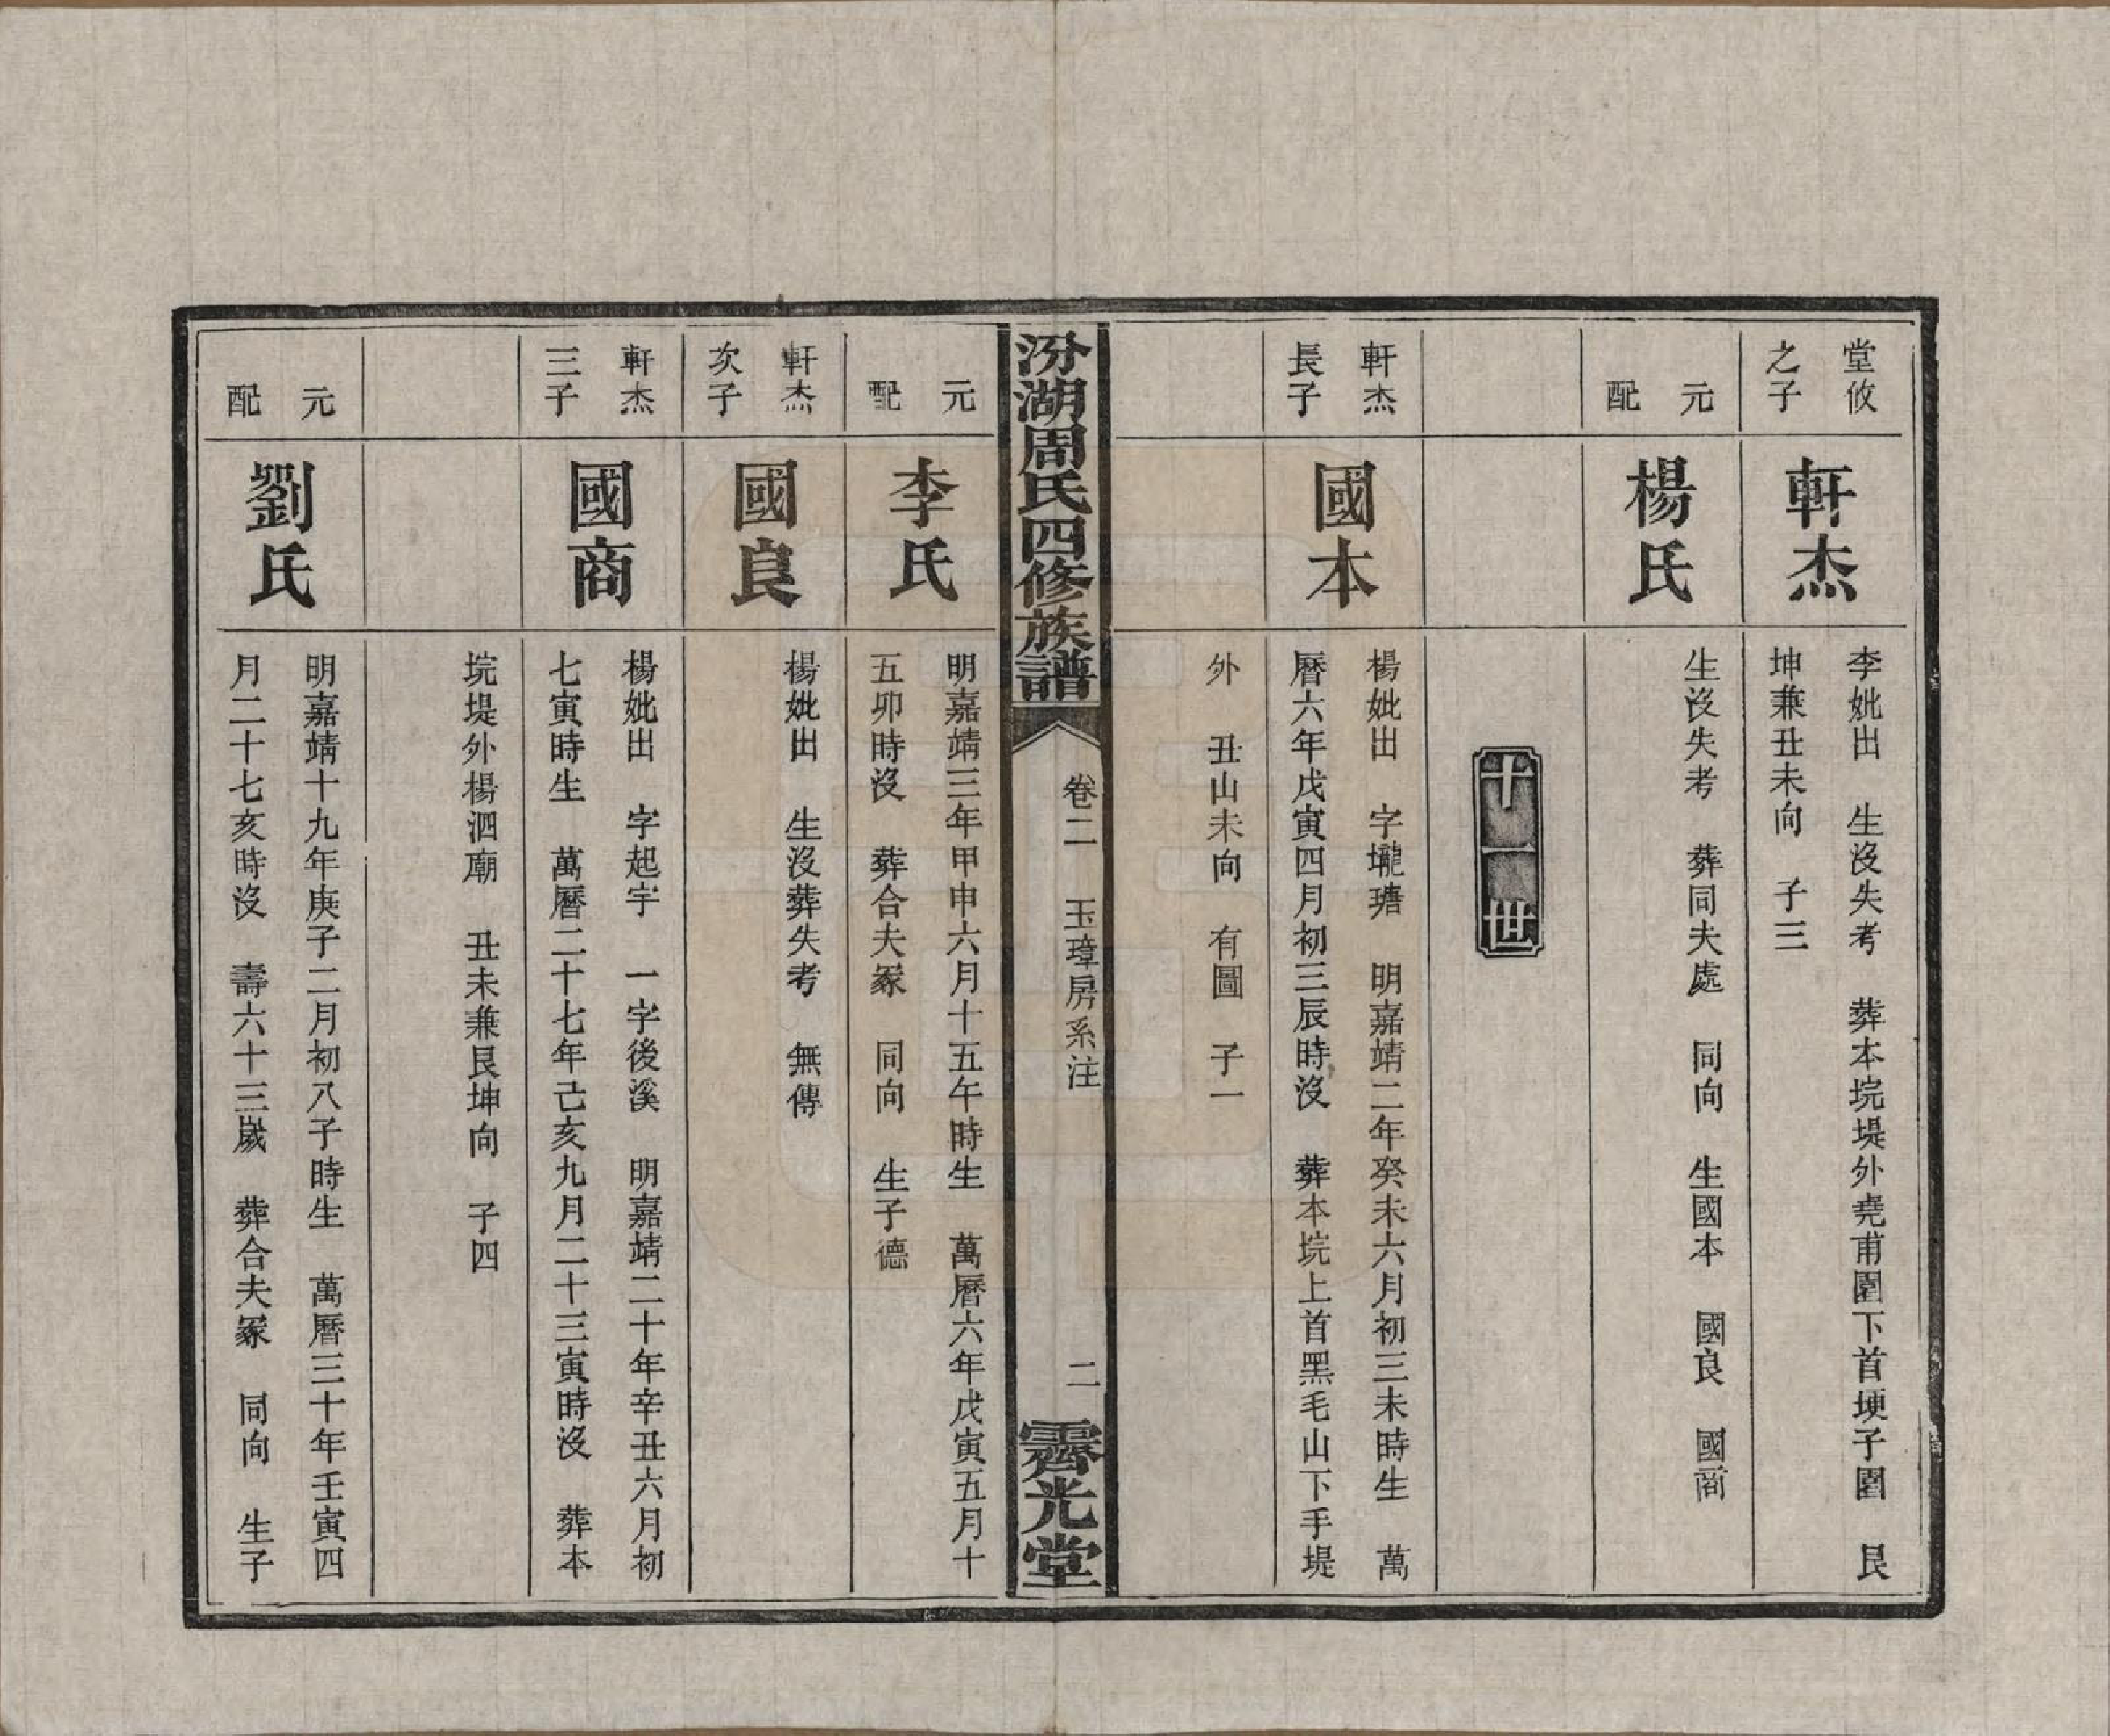 堂攸
之子
軒杰
李妣出　生沒失考　葬本垸堤外堯甫園下首埂子園　艮
坤兼丑未向　子三
元
配
楊氏
生沒失考　葬同夫處　同向　生國本　國良　國商
十一世
軒杰
長子
國本
楊妣出　字壠瑭　明嘉靖二年癸未六月初三未時生　萬
曆六年戊寅四月初三辰時沒　葬本垸上首黑毛山下手堤
外　丑山未向　有圖　子一
汾湖周氏四修族譜
卷二　玉璋房系注
二
霽光堂
元
配
李氏
明嘉靖三年甲申六月十五午時生　萬曆六年戊寅五月十
五卯時沒　葬合夫冢　同向　生子德
軒杰
次子
國良
楊妣出　生沒葬失考　無傳
軒杰
三子
國商
楊妣出　字起宇　一字後溪　明嘉靖二十年辛丑六月初
七寅時生　萬曆二十七年己亥九月二十三寅時沒　葬本
垸堤外楊泗廟　丑未兼艮坤向　子四
元
配
劉氏
明嘉靖十九年庚子二月初八子時生　萬曆三十年壬寅四
月二十七亥時沒　壽六十三歲　葬合夫冢　同向　生子